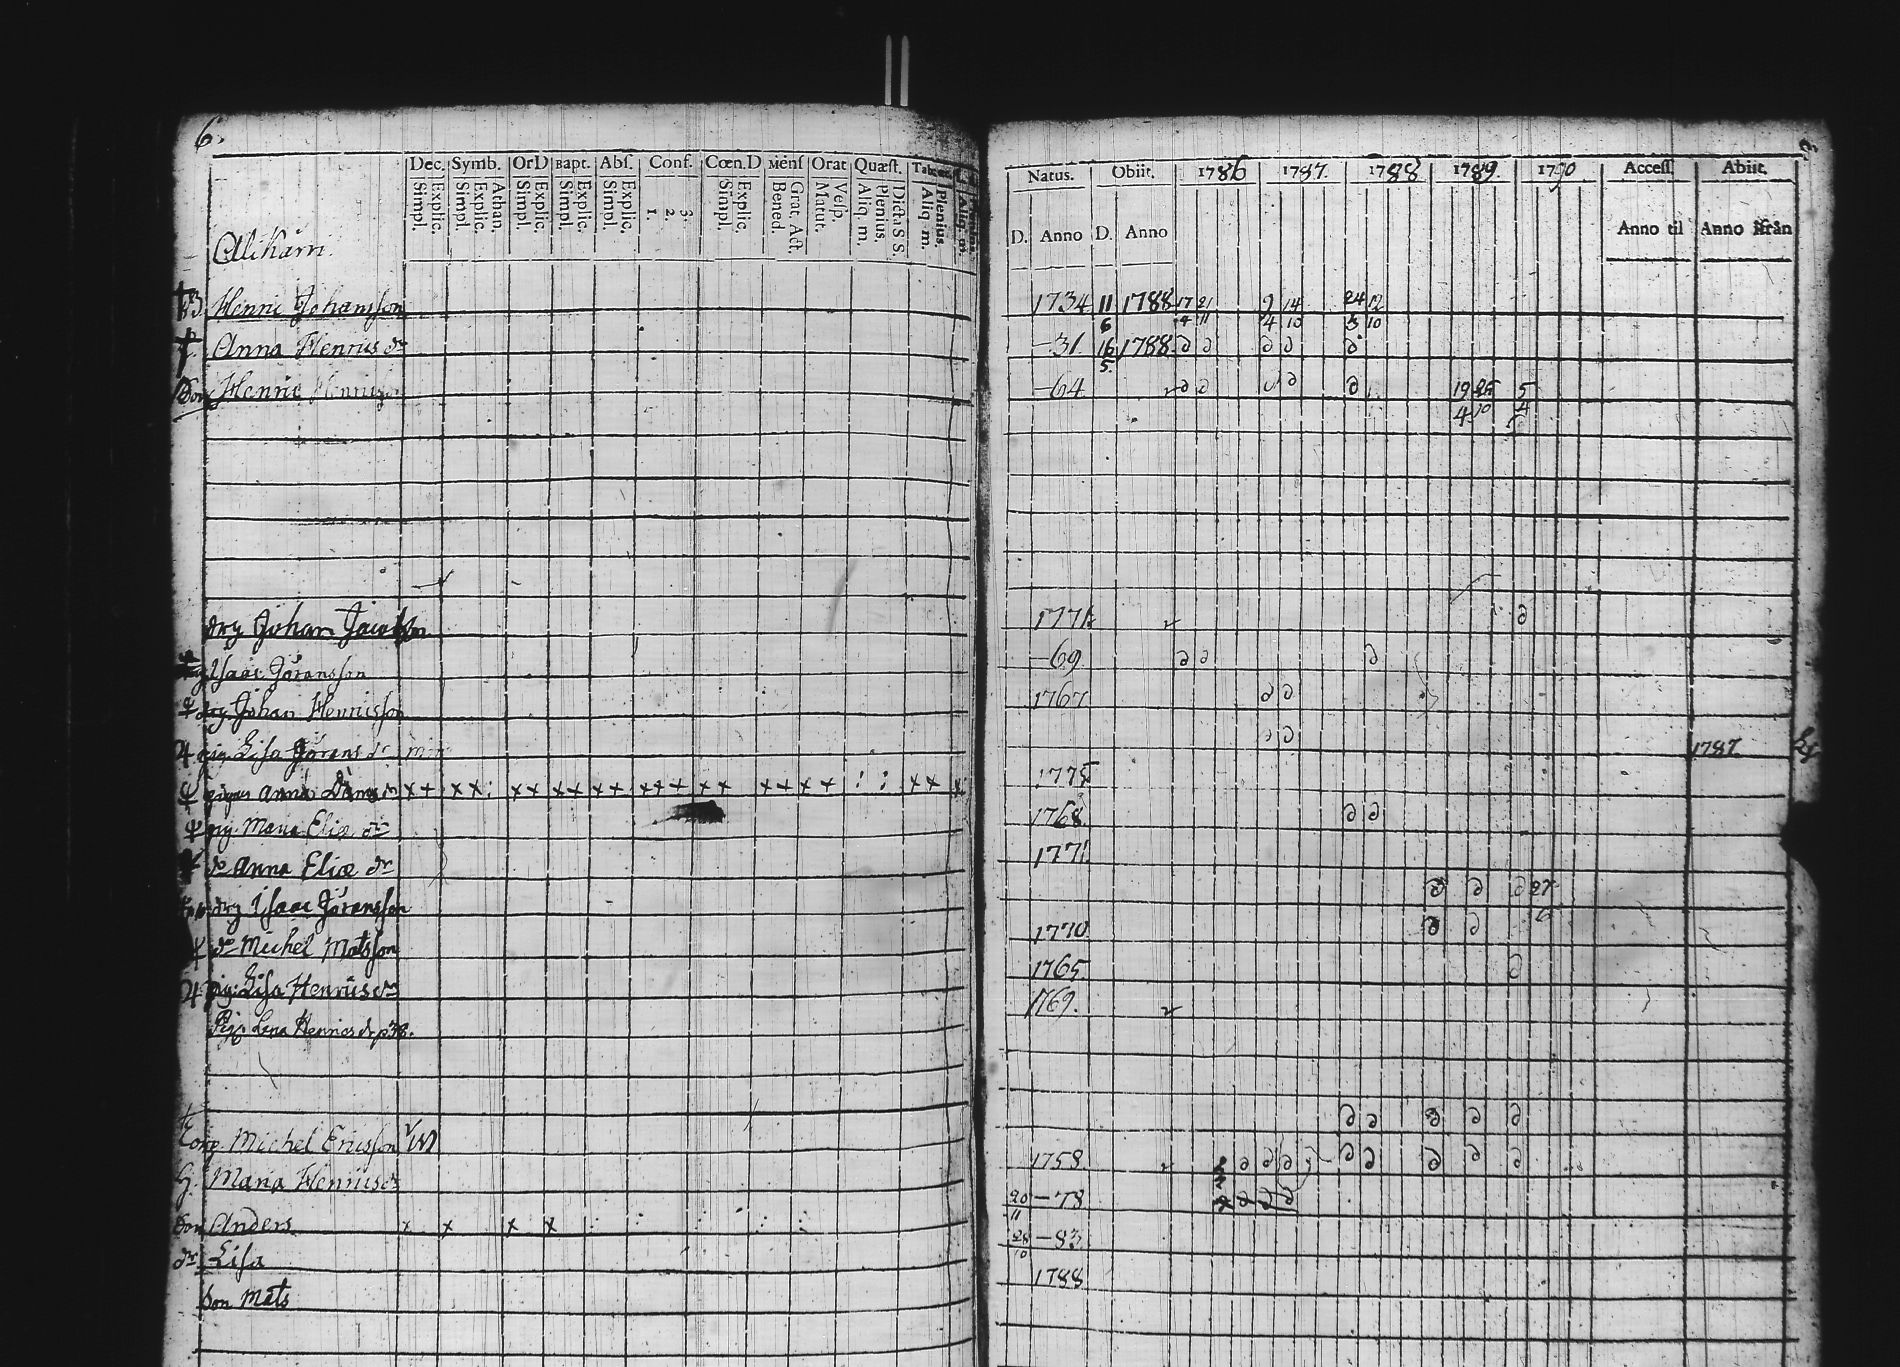 6.
Dec. Symb. OrD Bapt. Abs. Conf. Cœn.D Mens Orat Quæst.
Simpl. Explic. Simpl. Explic. Athan. Simpl. Explic. Simpl. Explic. Simpl. Explic. 1. 2. 3. Simpl. Explic. Bened. Grat. Act. Matut. Vesp. Aliq. m. Plenius. Dicta S S. Aliq. m. Plenius. Aliq. m.
Alikärri
Henric Johansson
Anna Henrics dr
Son Henric Henricss
drg Johan Jacobsson
Isaac Göransson
drg Johan Henricsson
pig. Lisa Görans dr
Anna
pig. Maria Eliæ dr
do Anna Eliæ dr
drg Isaac Göransson
do Michel Matsson
pig. Lisa Henrics dr
Pig. Lena Henrics dr p 38.
Corp. Michel Ericsson
H. Maria Henrics dr
Son Anders
dr Lisa
Son Mats
Natus. Obiit. 1786 1787. 1788 1789. 1790 Access. Abiit.
D. Anno D. Anno Anno til Anno ifrån
1734 11 6 1788 17 4 21 11 9 4 14 10 24 3 12 10
-31. 16 5 1788
-64 19 4 25 10 5 4
1771
-69
1767
1787
1775
1768
1771
27 6
1770
1765
1769.
1758
20 11 -78
28 10 -83
1788